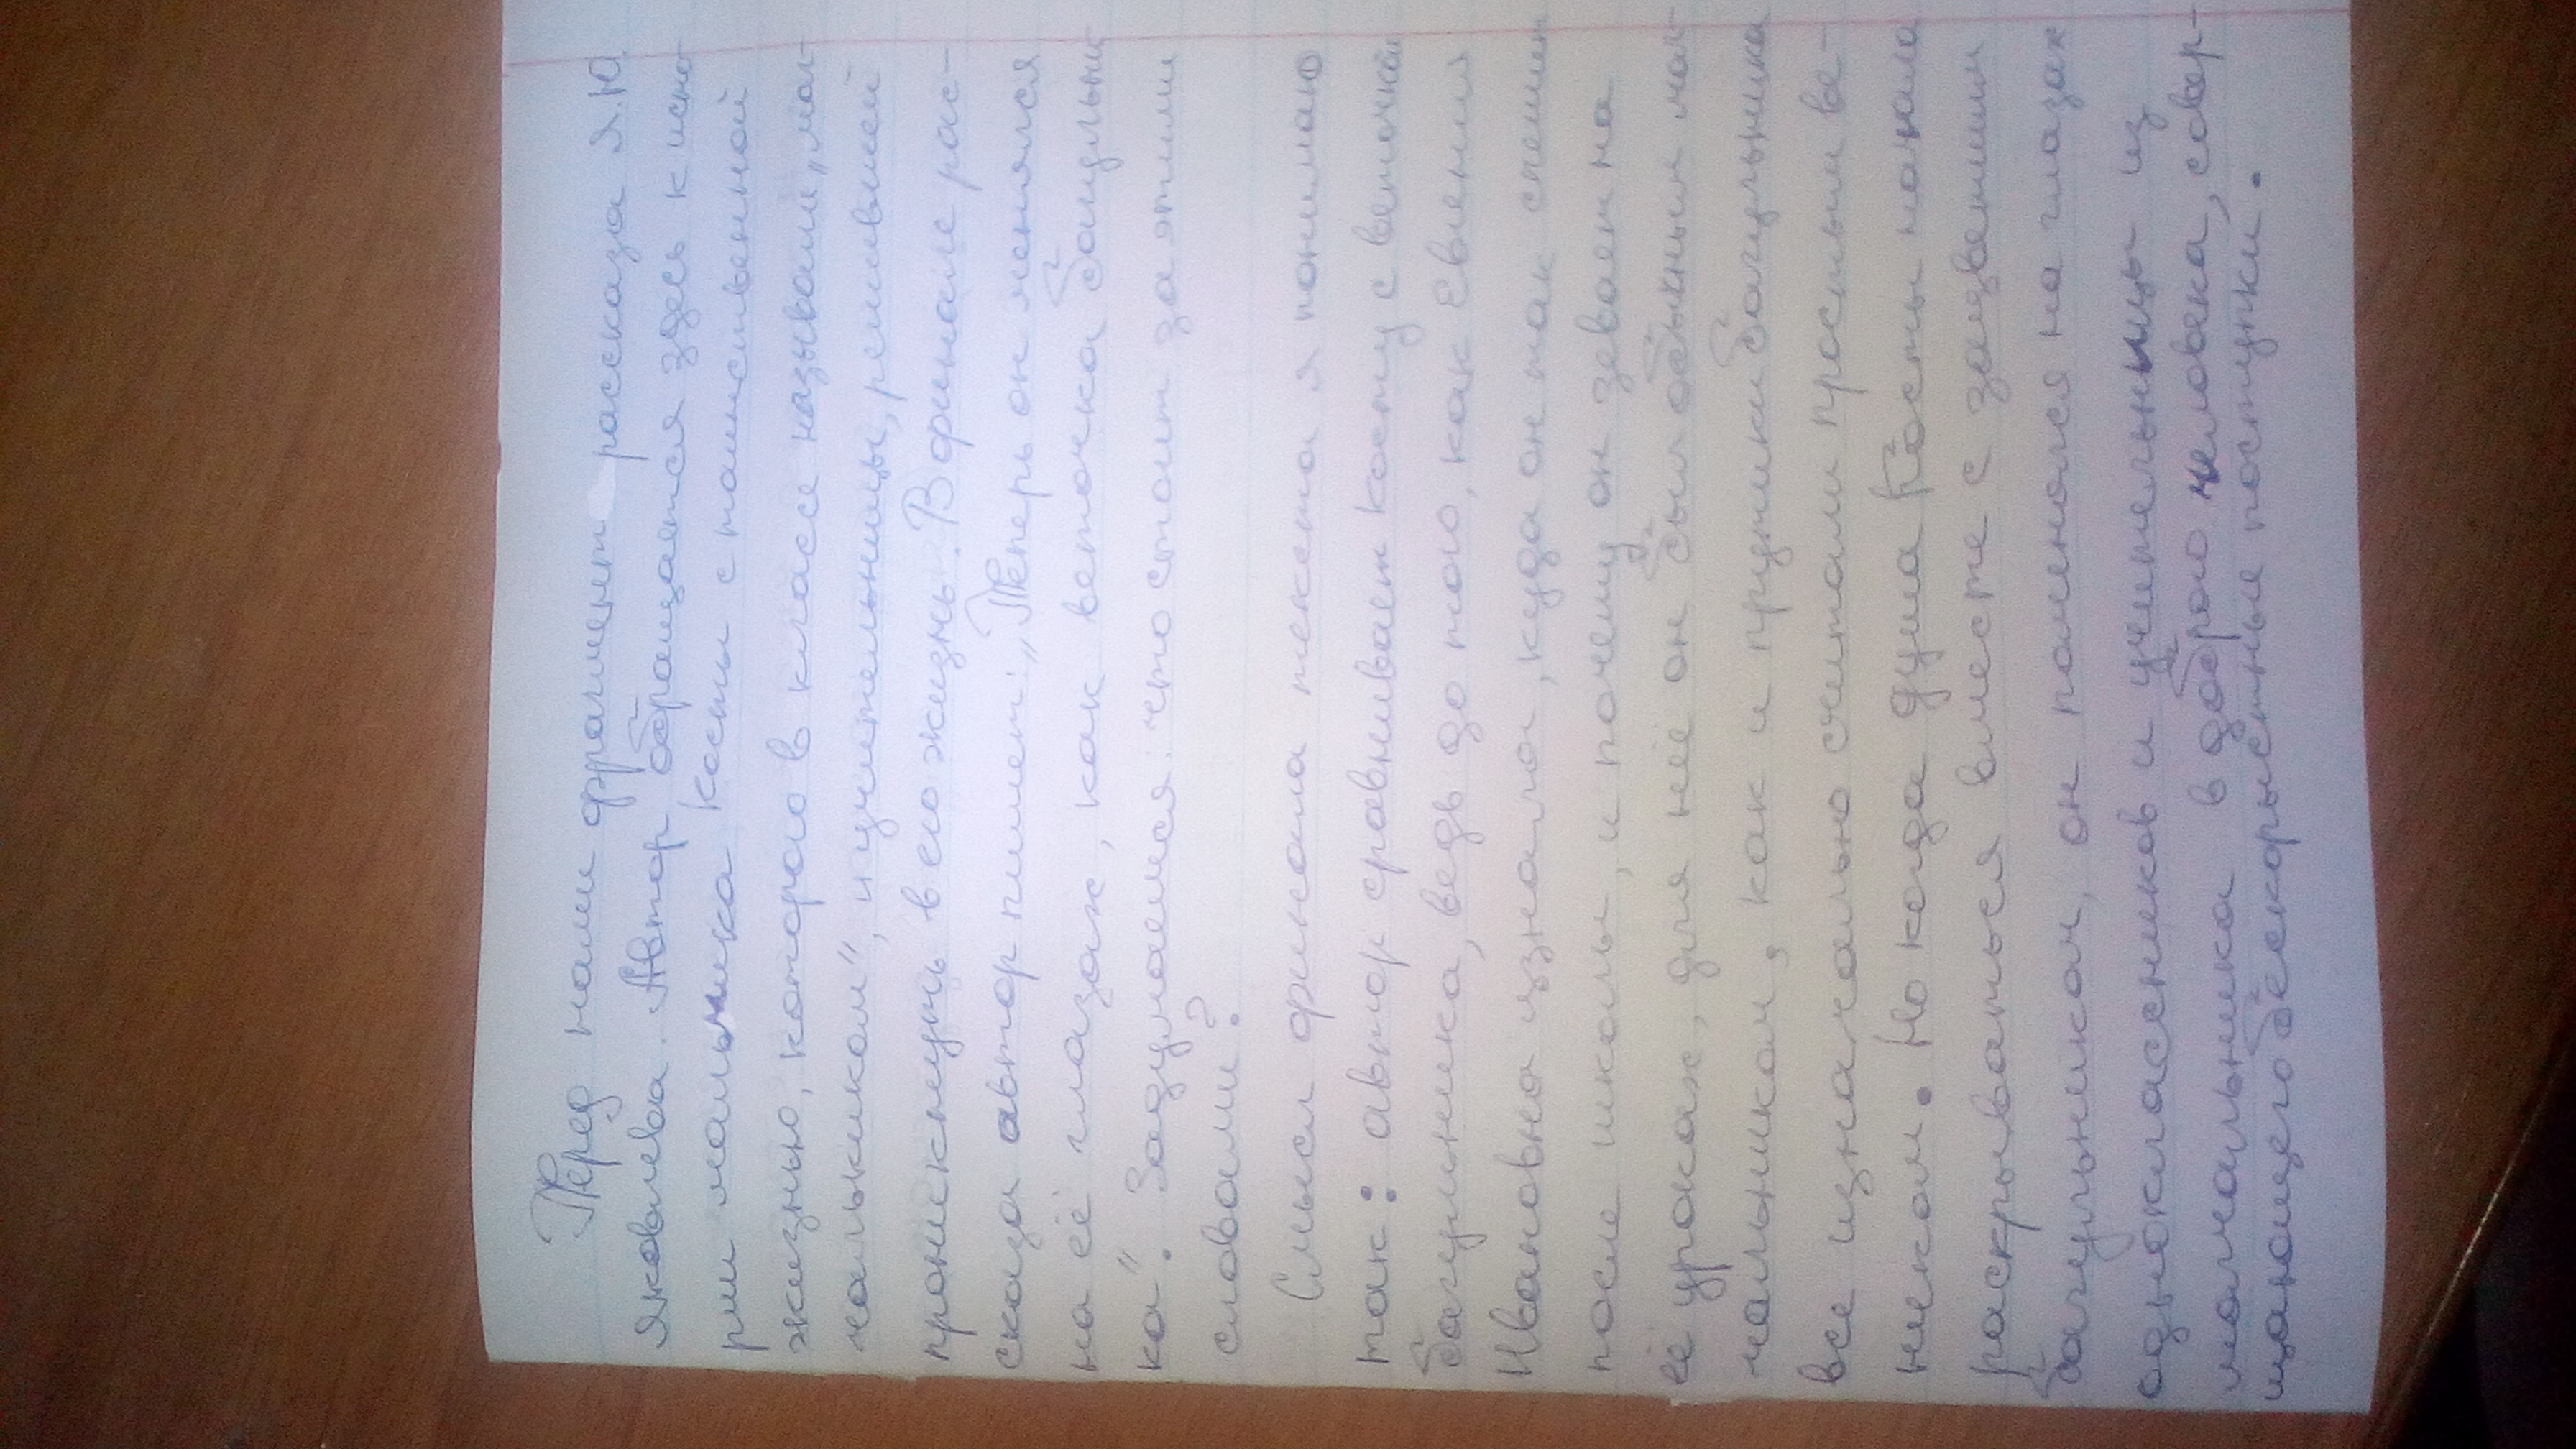 Перед нами фрагмент рассказа Я.Ю.
Яковлева. Автор обращается здесь к исто-
рии мальчика Косты с таинственной
жизнью, которого в классе называли „мол-
чальником", и учительницы, решившей
проникнуть в его жизнь. В финале рас-
сказа автор пишет: „Теперь он менялся
на её глазах, как веточка багульни-
ка". Задумаемся: что стоит за этими
словами?
Смысл финала текста я понимаю
так: автор сравнивает Косту с веточкой
багульника, ведь до того, как Евгения
Ивановна узнала, куда он так спешит
после школы, и почему он зевает на
её уроках, для неё он был обычным мол-
чальником, как и прутики багульника
все изначально считали простым ве-
ником. Но когда душа Косты начала
раскрываться вместе с зацветшим
багульником, он поменялся на глазах
одноклассников и учительницы из
молчальника в доброго человека, совер-
щающего бескорыстные поступки.